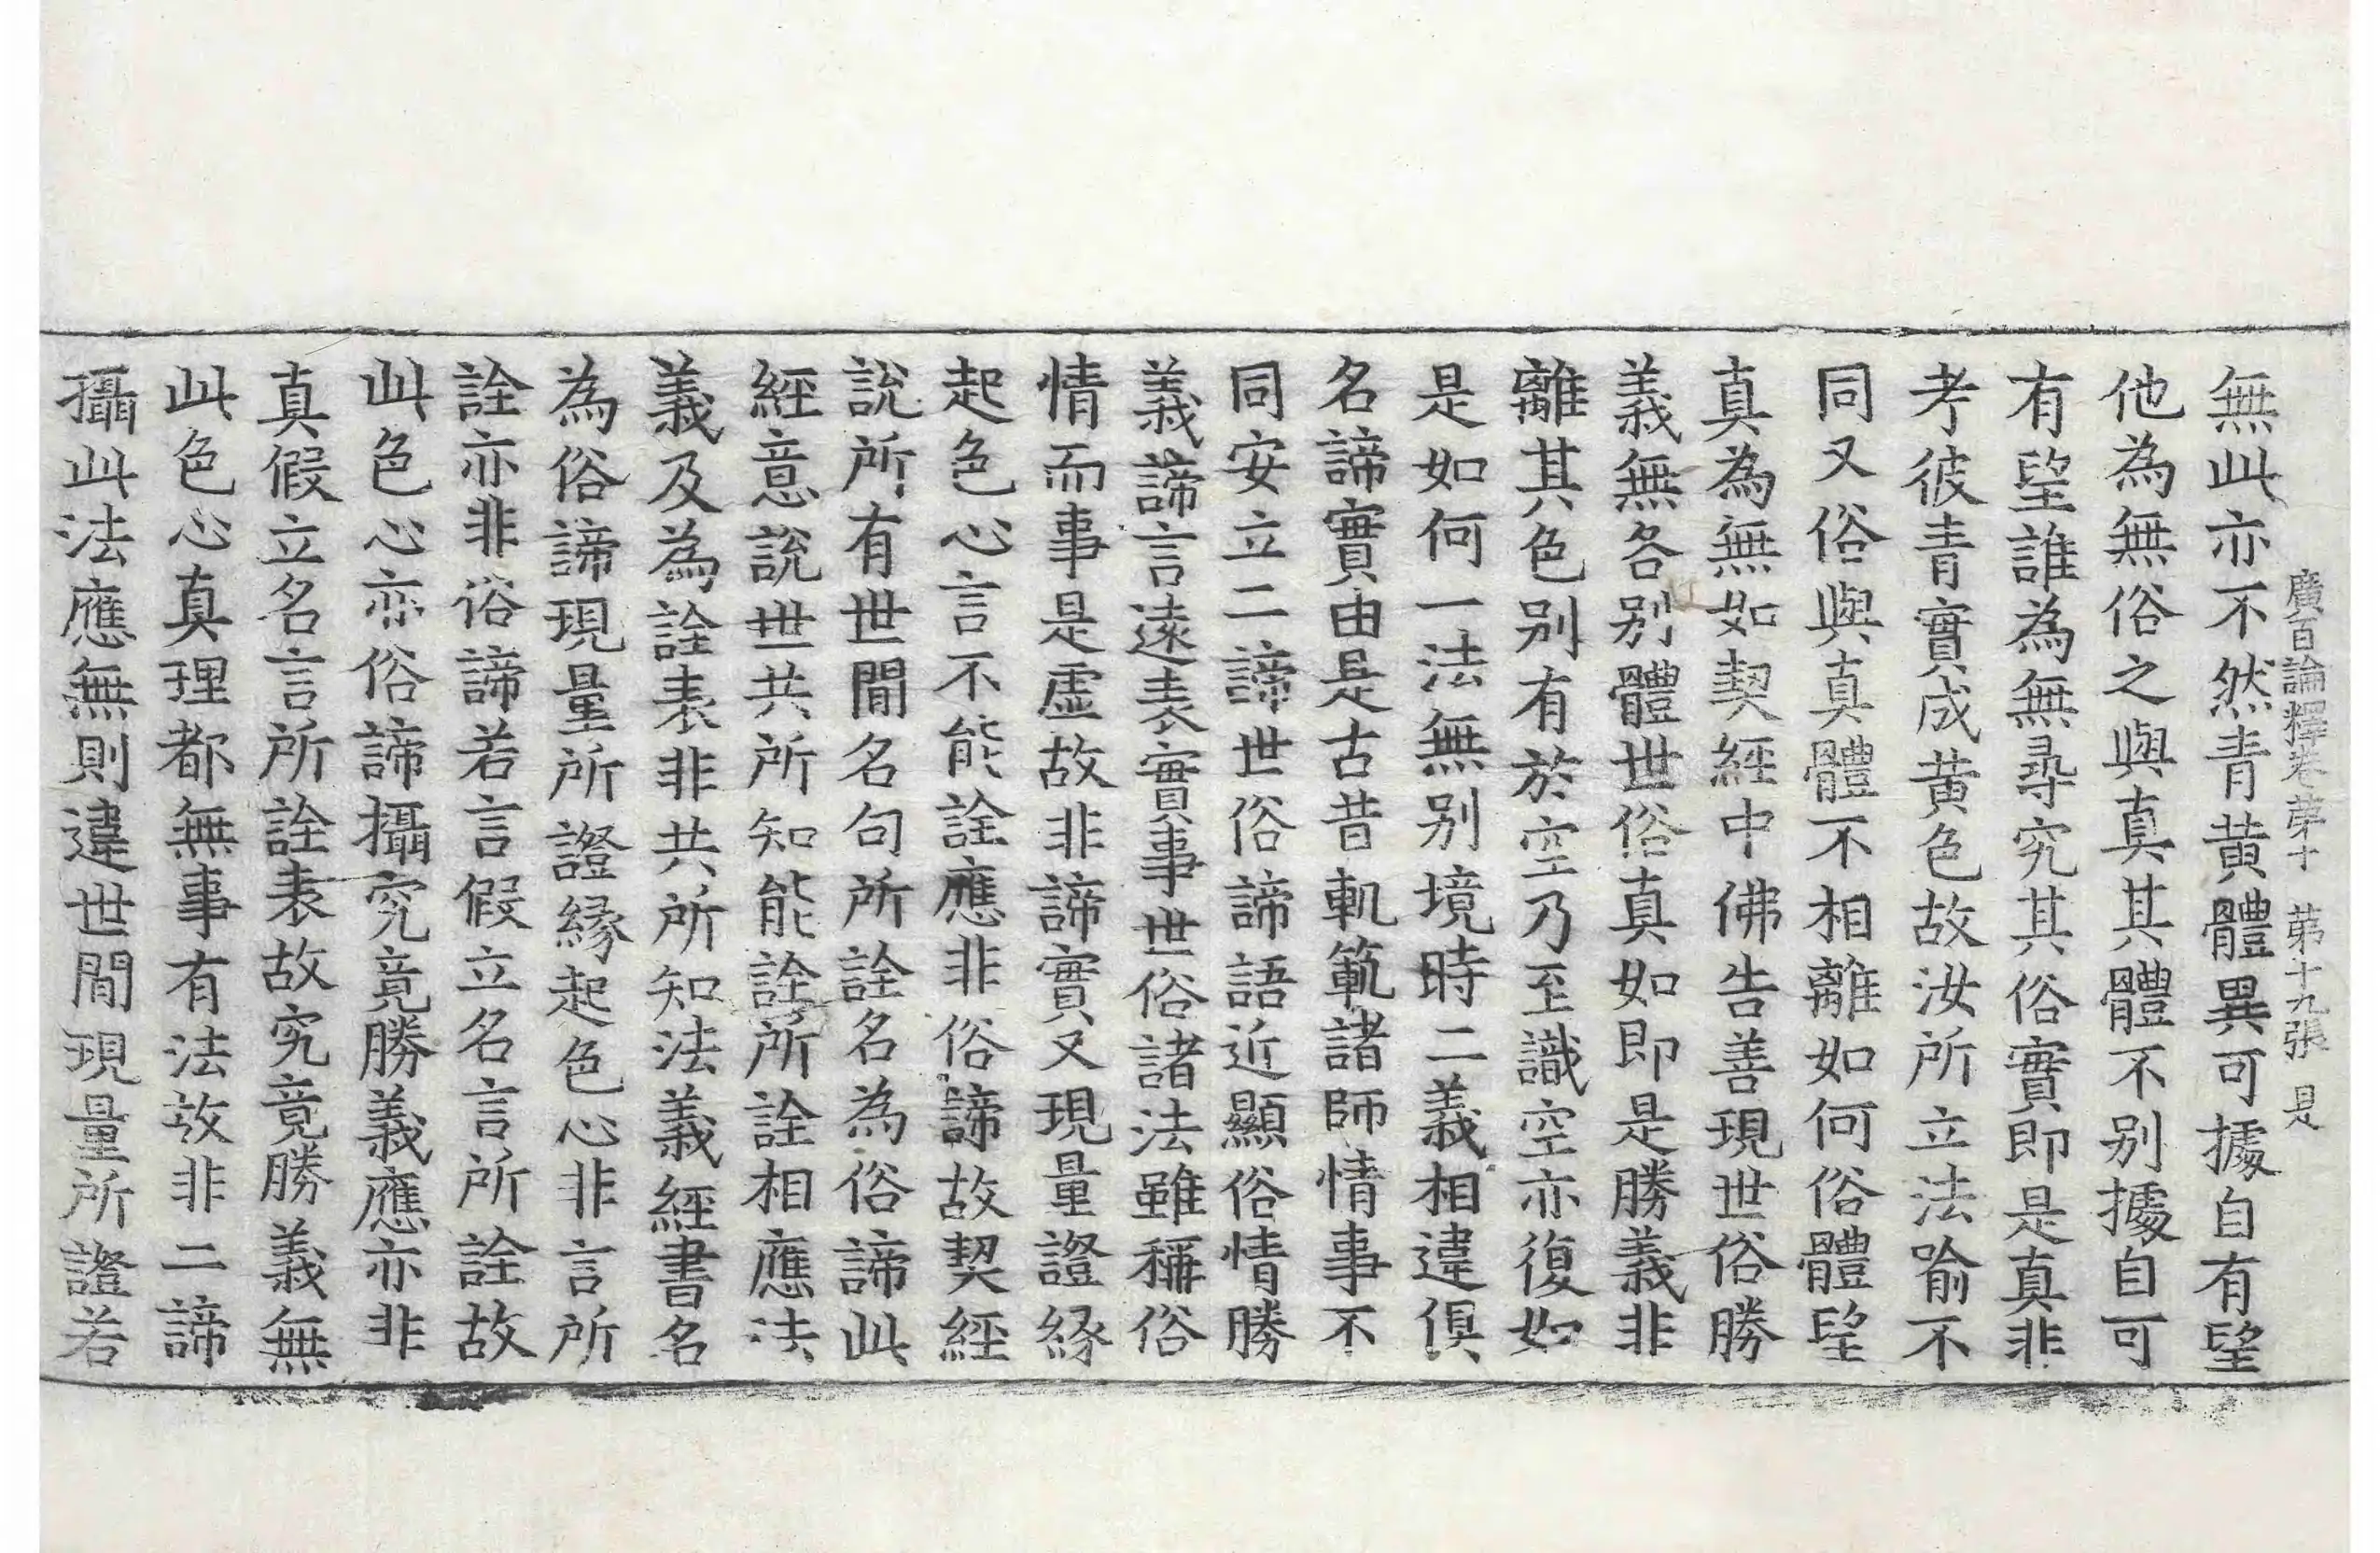 廣百論釋卷第十 第十九張 是
無此亦不然青黃體異可據自有望
他為無俗之與真其體不別據自可
有望誰為無尋究其俗實即是真非
考彼青實成黃色故汝所立法喻不
同又俗與真體不相離如何俗體望
真為無如契經中佛告善現世俗勝
義無各別體世俗真如即是勝義非
離其色別有於空乃至識空亦復如
是如何一法無別境時二義相違俱
名諦實由是古昔軌範諸師情事不
同安立二諦世俗諦語近顯俗情勝
義諦言遠表實事世俗諸法雖稱俗
情而事是虛故非諦實又現量證緣
起色心言不能詮應非俗諦故契經
說所有世間名句所詮名為俗諦此
經意說世共所知能詮所詮相應法
義及為詮表非共所知法義經書名
為俗諦現量所證緣起色心非言所
詮亦非俗諦若言假立名言所詮故
此色心亦俗諦攝究竟勝義應亦非
真假立名言所詮表故究竟勝義無
此色心真理都無事有法故非二諦
攝此法應無則違世間現量所證若